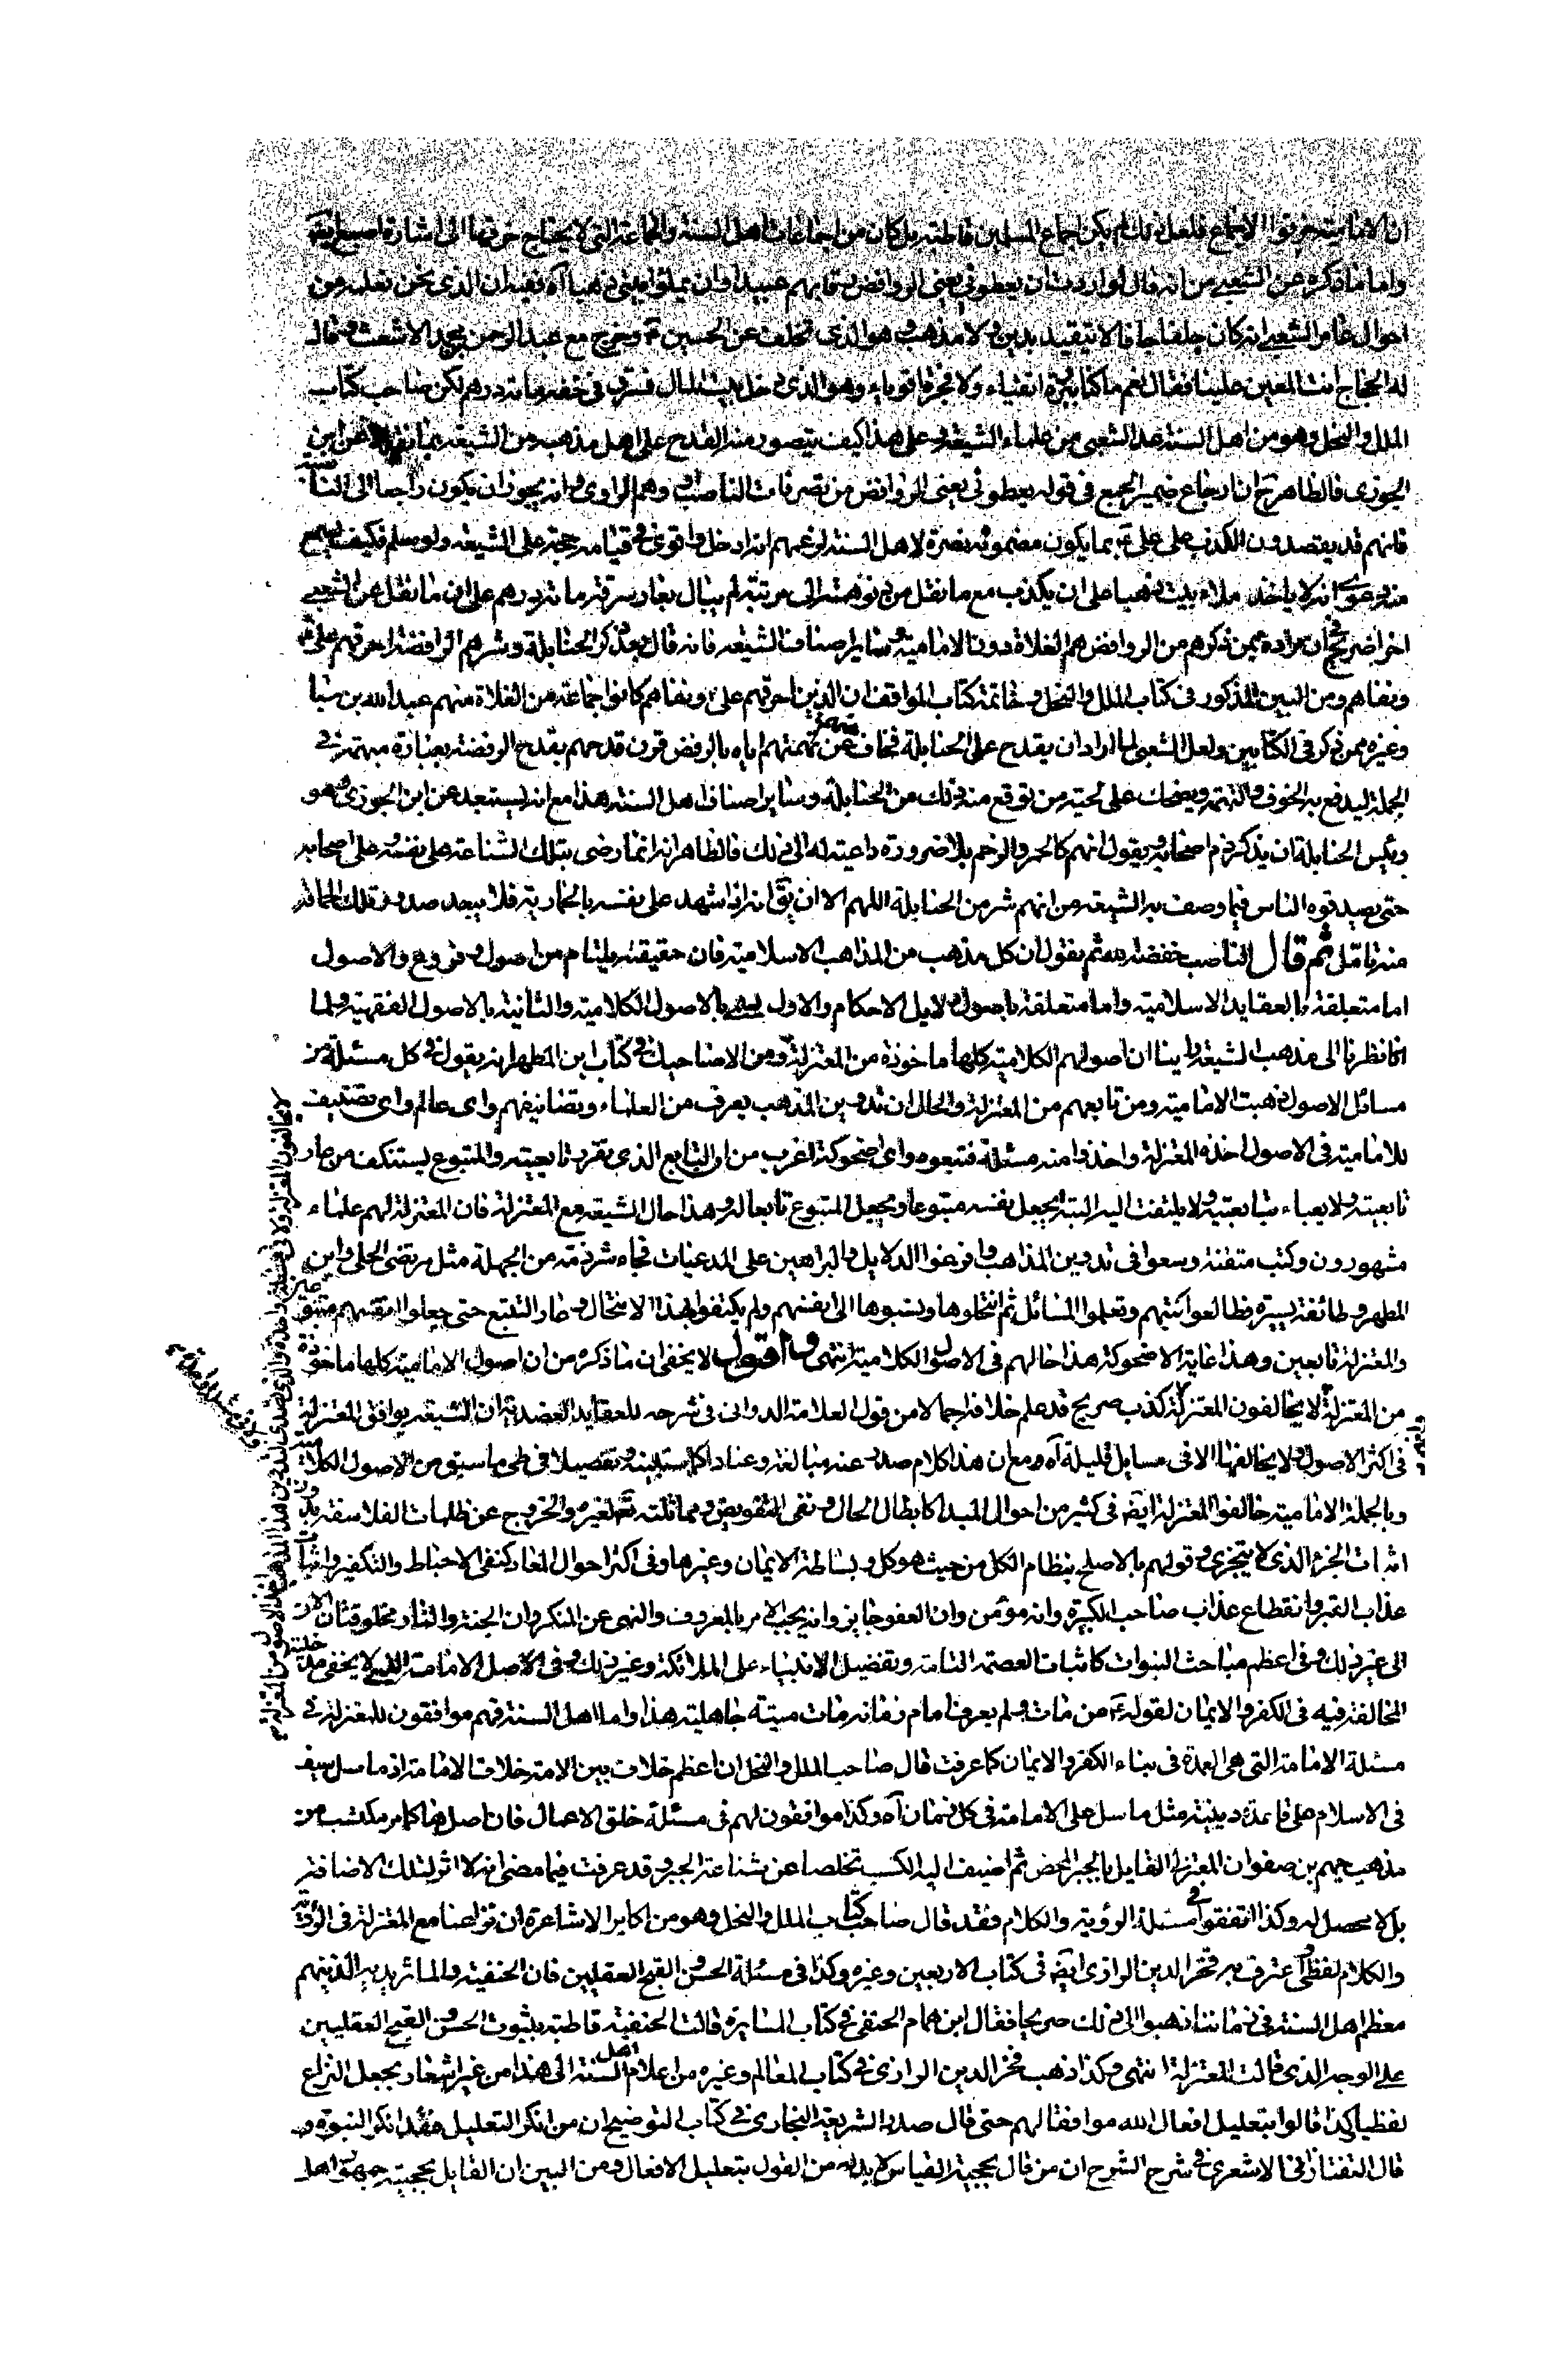 ان الامامية خرقوا الاجماع فلعل ذلك لم يكن اجماع المسلمين قاطبة بل كان من اجماعات اهل السنة والجماعة التي لا يحتاج خرقها الى اشارة اصبع ايضا
واما ما ذكره عن الشعبي من انه قال لو اردت ان يعطوني يعني الروافض رقابهم عبيدا وان يملئوا بيتي ذهبا آه ففيه ان الذي نحن نعلمه من
احوال عامر الشعبي انه كان جلفا جافا لا يتقيد بدين ولا مذهب وهو الذي تخلف عن الحسين ع وخرج مع عبد الرحمن بن محمد الاشعث وقال
له الحجاج انت المعين علينا فقال نعم ما كنا ببررة اتقياء ولا فجرة اقوياء وهو الذي دخل بيت المال فسرق في خفه مائة درهم لكن صاحب كتاب
الملل والنحل وهو من اهل السنة عد الشعبي من علماء الشيعة وعلى هذا كيف يتصور منه القدح على اهل مذهبه من الشيعة بما نقله عن ابن
الجوزي فالظاهر ح ان ارجاع ضمير الجمع في قوله يعطوني يعني الروافض من تصرفات الناصب او وهم الراوي وانه يجوز ان يكون راجعا الى الناصبة
فانهم قد يقصدون الكذب على علي ع بما يكون مضمونه نصرة لاهل السنة لزعمهم انه ادخل واقوى في قيامه حجة على الشيعة ولو سلم فكيف يسمع
منه دعوى انه لا ياخذ ملاء بيت ذهبا على ان يكذب مع ما نقل من نزو همته الى مرتبة لم يبال بعار سرقة مائة درهم على ان ما نقل عن الشعبي
اخرا ضريح في ان مراده ممن ذكرهم من الروافض هم الغلاة دون الامامية وساير اصناف الشيعة فانه قال بعد ذكر الحنابلة وشرهم الرافضة احرقهم علي ع
ونفاهم ومن البين المذكور في كتاب الملل والنحل وخاتمة كتاب المواقف ان الذين احرقهم علي ع ونفاهم كانوا جماعة من الغلاة منهم عبد الله بن سبا
وغيره ممن ذكر في الكتابين ولعل الشعبي لما اراد ان يقدح على الحنابلة فخاف عن تهمتهم اياه بالرفض قرن قدحهم بقدح الرفضة بعبارة مبهمة في
الجملة ليدفع به الخوف والتهمة ويضحك على لحية من توقع منه ذلك من الحنابلة وساير اصناف اهل السنة هذا مع انه يستبعد عن ابن الجوزي وهو
رئيس الحنابلة ان يذكر ذم اصحابه ويقول انهم كالحمر والرخم بلا ضرورة داعية له الى ذلك فالظاهر انه انما رضى بتلك الشناعة على نفسه وعلى اصحابه
حتى يصدقوه الناس فيما وصف به الشيعة من انهم شر من الحنابلة اللهم الا ان يق انه اذا شهد على نفسه بالحمارية فلا يبعد صدور تلك الحماقة
منه تامل ثم قال الناصب خفضه الله ثم نقول ان كل مذهب من المذاهب الاسلامية فان حقيقته يلتئم من اصول وفروع والاصول
اما متعلقة بالعقايد الاسلامية واما متعلقة باصول دلايل الاحكام والاول يسمى بالاصول الكلامية والثانية بالاصول الفقهية ولما
انا نظرنا الى مذهب الشيعة راينا ان اصولهم الكلامية كلها ماخوذة من المعتزلة ومن الاضاحيك في كتاب ابن المطهر انه يقول في كل مسئلة من
مسائل الاصول ذهبت الامامية ومن تابعهم من المعتزلة والحال ان تدوين المذهب يعرف من العلماء وتصانيفهم واي عالم واي تصنيف
للامامية في الاصول اخذه المعتزلة واخذوا منه مسئلة فتبعوه واي اضحوكة اغرب من ان التابع الذي تقرر تابعيته والمتبوع يستنكف من عار
تابعيته ولا يعباء بتابعيته ولا يلتفت اليه البتة يجعل نفسه متبوعا ويجعل المتبوع تابعا له وهذا حال الشيعة مع المعتزلة فان المعتزلة لهم علماء
مشهورون وكتب متقنة وسعوا في تدوين المذاهب وافرغوا الدلايل والبراهين على المدعيات فجاء شرذمة من الجهلة مثل مرتضى الحلي وابن
المطهر وطائفة يسيرة فطالعوا كتبهم وتعلموا المسائل ثم انتحلوها ونسبوها الى انفسهم ولم يكتفوا بهذا الانتحال وعار التتبع حتى جعلوا انفسهم متبوعين
والمعتزلة تابعين وهذا غاية الاضحوكة هذا حالهم في الاصول الكلامية انتهى واقول لا يخفى ان ما ذكره من ان اصول الامامية كلها ماخوذة
من المعتزلة لا يخالفون المعتزلة كذب صريح قد علم خلافه اجمالا من قول العلامة الدواني في شرحه للعقايد العضدية ان الشيعة يوافق المعتزلة
في اكثر الاصول ولا يخالفها الا في مسايل قليلة آه ومع ان هذا كلام صدر عنه مبالغة وعنادا كما ستبينه وتفصيلا في طي ما سبق من الاصول الكلامية
وبالجملة الامامية خالفوا المعتزلة ايض في كثير من احوال المبدا كابطال الحال ونفي التفويض ومماثلته تع لغيره والخروج عن ظلمات الفلاسفة باثبات
اثبات الجزء الذي لا يتجزى وقولهم بالاصلح بنظام الكل من حيث هو كل وبساطة الايمان وغيرها وفي اكثر احوال المعاد كنفي الاحباط والتكفير واثبات
عذاب القبر وانقطاع عذاب صاحب الكبيرة وانه مؤمن وان العفو جايز وانه يجب الامر بالمعروف والنهي عن المنكر وان الجنة والنار مخلوقتان الان
الى غير ذلك وفي اعظم مباحث النبوات كاثبات العصمة التامة وتفضيل الانبياء على الملائكة وغير ذلك وفي الاصل الامامة الذي لا يخفى
المخالفة فيه في الكفر والايمان لقوله ع من مات ولم يعرف امام زمانه مات ميتة جاهلية هذا واما اهل السنة فهم موافقون للمعتزلة في
مسئلة الامامة التي هي العمدة في بناء الكفر والايمان كما عرفت قال صاحب الملل والنحل ان اعظم خلاف بين الامة خلاف الامامة اذ ما سل سيف
في الاسلام على قاعدة دينية مثل ما سل على الامامة في كل زمان آه وكذا موافقون لهم في مسئلة خلق الاعمال فان اصل هذا كما مر مكتسب من
مذهب جهم بن صفوان المعتزلي القايل بالجبر المحض ثم اضيف اليه الكسب تخلصا عن شناعة الجبر وقد عرفت فيما مضى انه لا اثر لتلك الاضافة
بل لا محصل له وكذا اتفقوا في مسئلة الرؤية والكلام فقد قال صاحب كتاب الملل والنحل وهو من اكابر الاشاعرة ان نزاعنا مع المعتزلة في الرؤية
والكلام لفظي واعترف به فخر الدين الرازي ايض في كتاب الاربعين وغيره وكذا في مسئلة الحسن والقبح العقليين فان الحنفية والماتريدية الذين هم
معظم اهل السنة في زماننا ذهبوا الى ذلك صريحا فقال ابن همام الحنفي في كتاب المسايرة قالت الحنفية قاطبة بثبوت الحسن والقبح العقليين
على الوجه الذي قالت المعتزلة انتهى وكذا ذهب فخر الدين الرازي في كتاب المعالم وغيره من اعلام اهل السنة الى هذا من غير اشعار بجعل النزاع
لفظيا وكذا قالوا بتعليل افعال الله موافقا لهم حتى قال صدر الشريعة البخاري في كتاب التوضيح ان من انكر التعليل فقد انكر النبوة و
قال التفتازاني الاشعري في شرح الشرح ان من قال بحجية القياس لا بد له من القول بتعليل الافعال ومن البين ان القايل بحجيته جمهور اهل